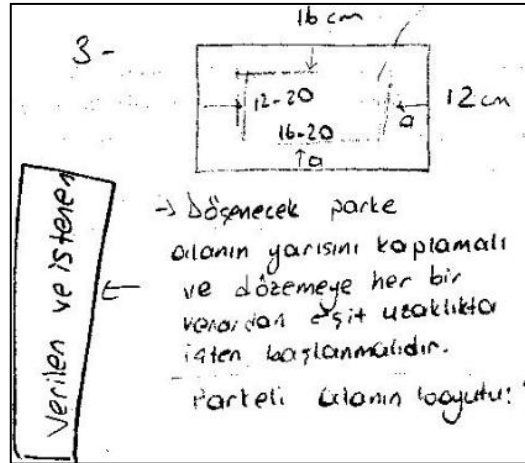 16 cm
3-
12-20
12 cm
a
16-20
a
Verilen ve istenen
→ Döşenecek parke
alanın yarısını kaplamalı
ve dözemeye her bir
kenardan eşit uzaklıkta
içten başlanmalıdır.
Parkeli alanın boyutu?